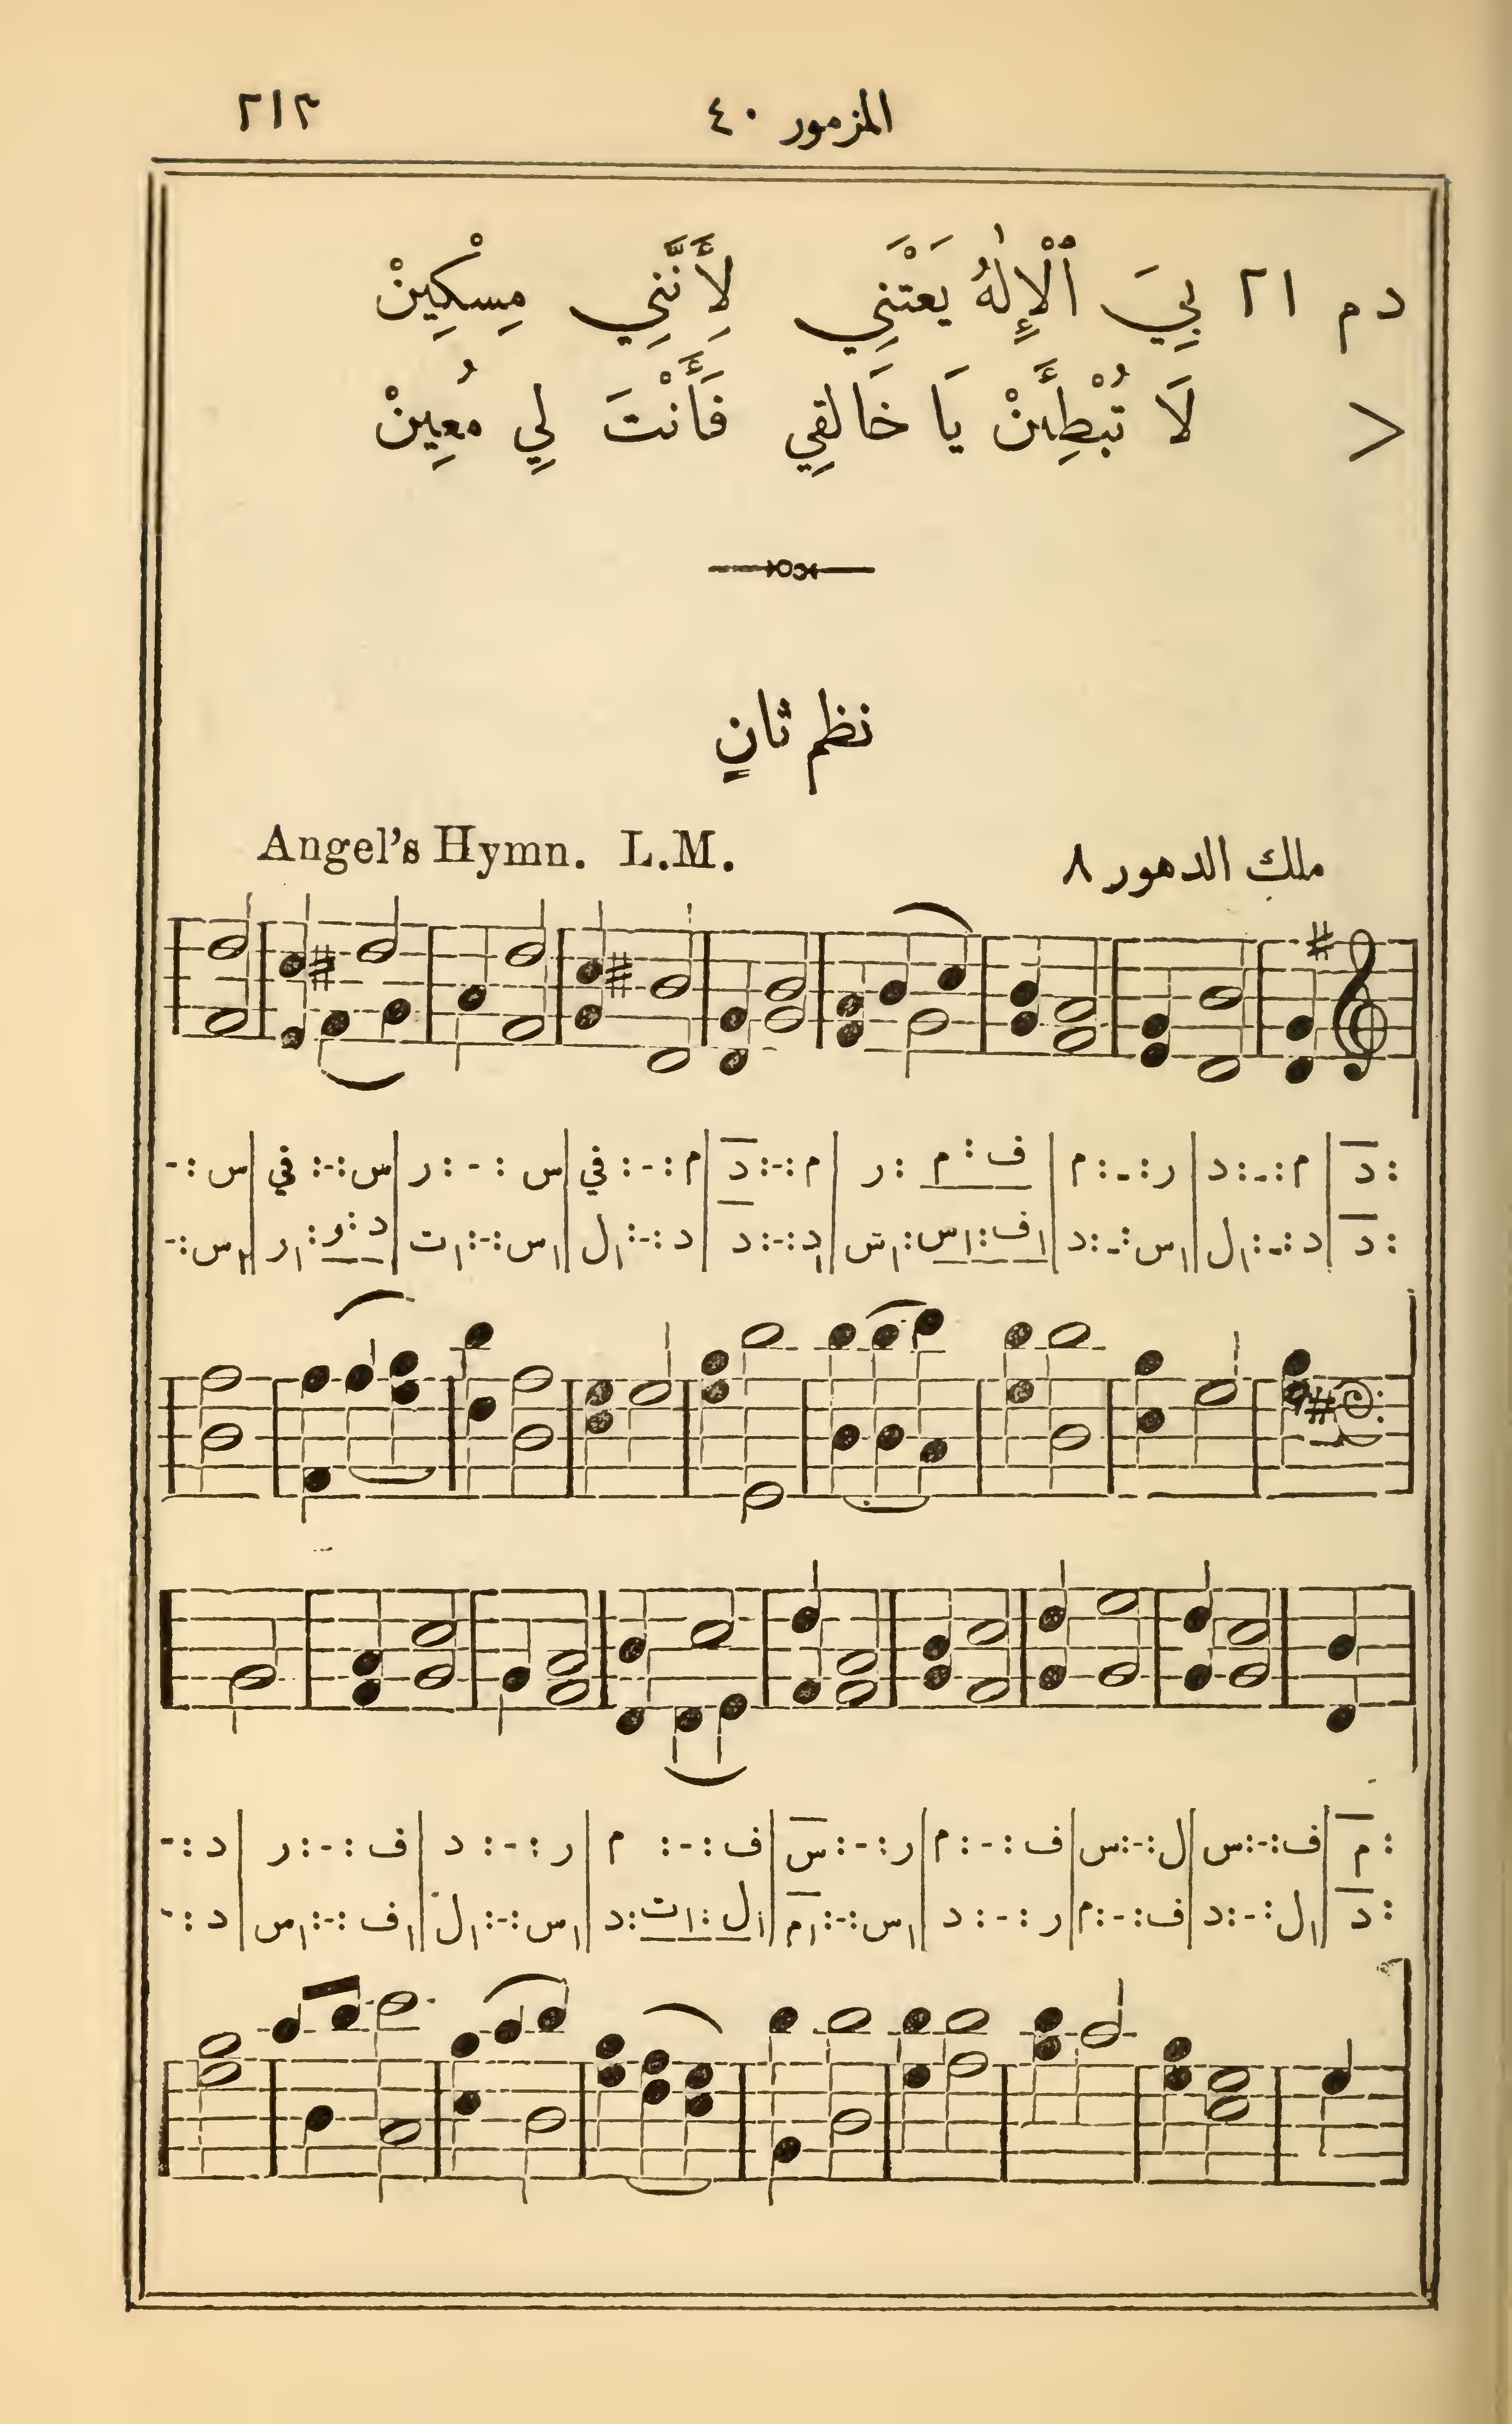 المزمور ٤٠ ٢١٣
دم ٢١ بِيَ ٱلْإِلٰهُ يَعْتَنِي لِأَنَّنِي مِسْكِينْ
> لَا تُبْطِئَنْ يَا خَالِقِي فَأَنْتَ لِي مُعِينْ
نظم ثانٍ
ملك الدهور ٨ Angel's Hymn. L.M.
:د | م:-:د | ر:-:م | ف:م :ر | م:-:د | م:-:في | س:-:ر | س:-:في | س:-
:م | ف:-:س | ل:-:س | ف:-:م | ر:-:س | ف:-:م | ر:-:د | ف:-:ر | د:-